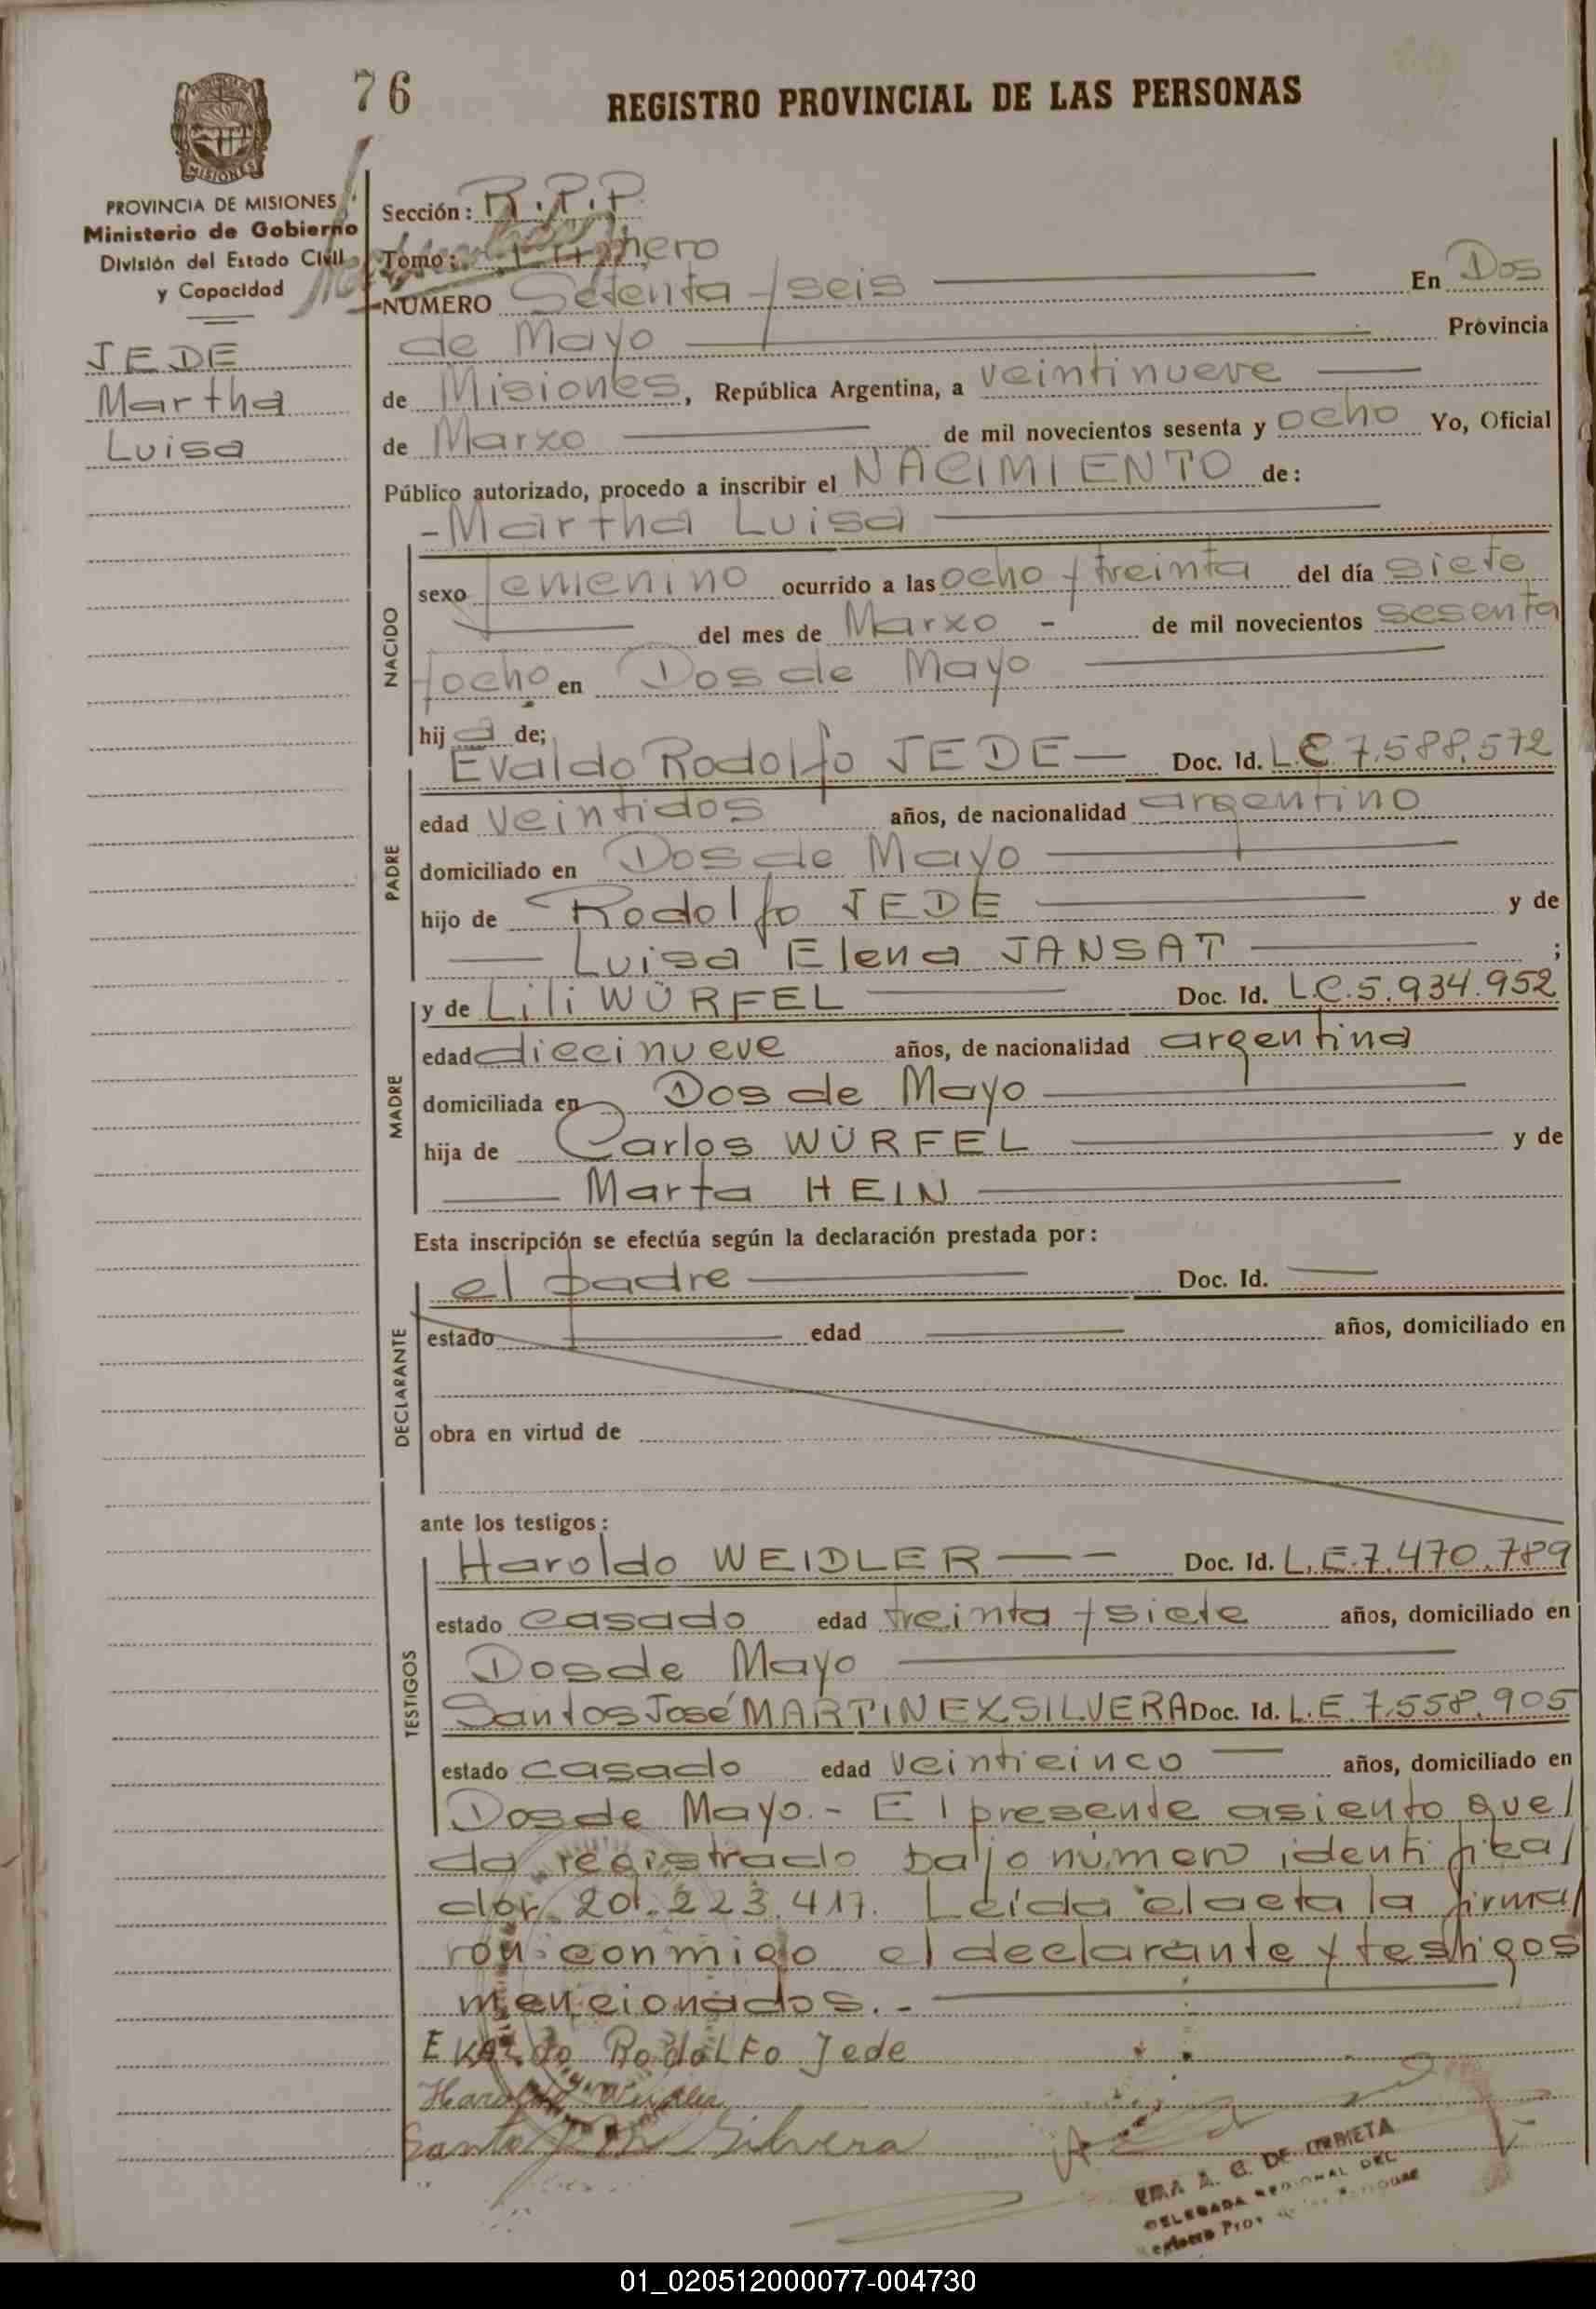 76
REGISTRO PROVINCIAL DE LAS PERSONAS
MISIONES
PROVINCIA DE MISIONES
Ministerio de Gobierno
División del Estado Civil
y Capacidad
JEDE
Martha
Luisa
Sección: R.P.P.
Tomo: Primero
NUMERO Setenta y seis En Dos
de Mayo Provincia
de Misiones, República Argentina, a veintinueve
de Marzo de mil novecientos sesenta y ocho Yo, Oficial
Público autorizado, procedo a inscribir el NACIMIENTO de:
- Martha Luisa
NACIDO
sexo femenino ocurrido a las ocho y treinta del día siete
del mes de Marzo - de mil novecientos sesenta
y ocho en Dos de Mayo
hij a de;
PADRE
Evaldo Rodolfo JEDE — Doc. Id. L.E. 7.588.572
edad veintidos años, de nacionalidad argentino
domiciliado en Dos de Mayo
hijo de Rodolfo JEDE y de
Luisa Elena JANSAT ;
MADRE
y de Lili WÜRFEL Doc. Id. L.C. 5.934.952
edad diecinueve años, de nacionalidad argentina
domiciliada en Dos de Mayo
hija de Carlos WÜRFEL y de
Marta HEIN
Esta inscripción se efectúa según la declaración prestada por:
DECLARANTE
el padre Doc. Id.
estado edad años, domiciliado en
obra en virtud de
ante los testigos:
TESTIGOS
Haroldo WEIDLER — — Doc. Id. L.E. 7.470.789
estado casado edad treinta y siete años, domiciliado en
Dos de Mayo
Santos José MARTINEZ SILVERA Doc. Id. L.E. 7.558.905
estado casado edad veinticinco años, domiciliado en
Dos de Mayo.- El presente asiento que/
da registrado bajo número identifica/
dor 20.223.417. Leída el acta la firma/
ron conmigo el declarante y testigos
mencionados.-
Evaldo Rodolfo Jede
Haroldo Weidler
Santo Silvera
DELEGADA REGIONAL DEL
01_020512000077-004730